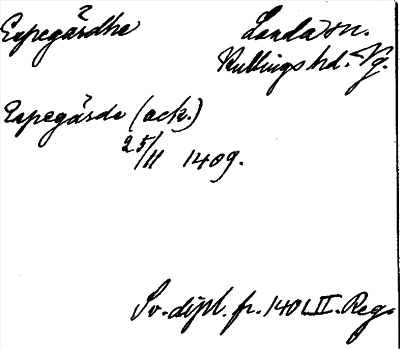 Espegärdhe Landa sn.
Kullings hd. Vg.
Espegärde (ack.)
25/11 1409.
Sv. dipl. fr. 1401 II. Reg.